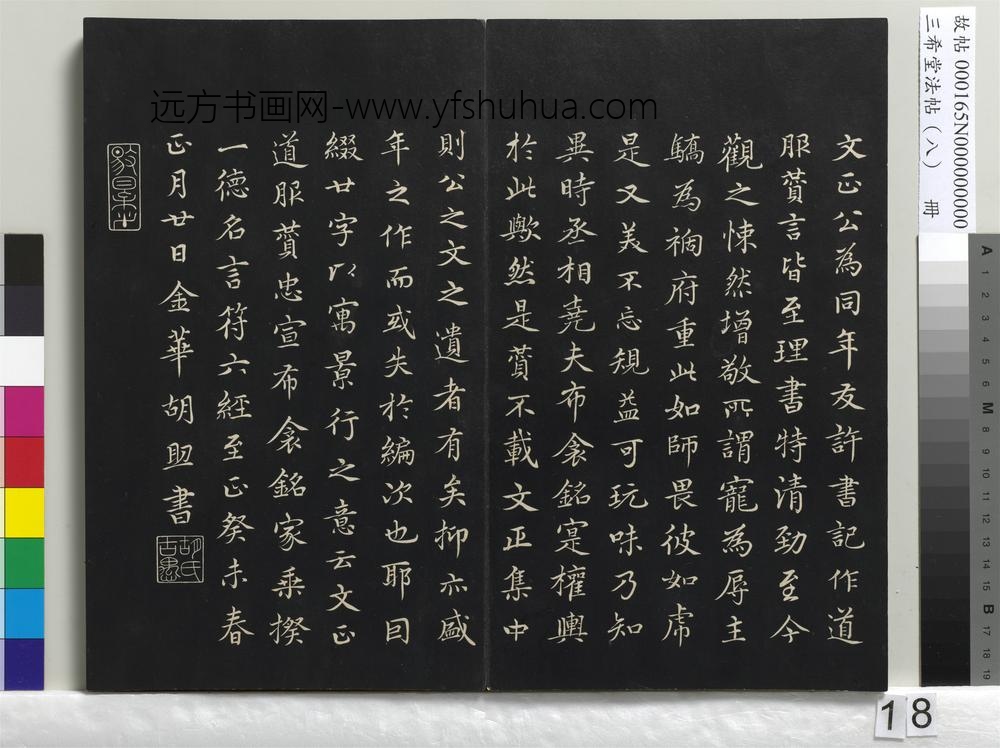 远方书画网-www.yfshuhua.com
文正公為同年友許書記作道
服賛言皆至理書特清勁至今
觀之悚然增敬所謂寵為辱主
驕為禍府重此如師畏彼如虎
是又美不忘規益可玩味乃知
異時丞相堯夫布衾銘寔權輿
於此歟然是賛不載文正集中
則公之文之遺者有矣抑亦盛
年之作而或失於編次也耶因
綴廿字以寓景行之意云文正
道服賛忠宣布衾銘家乘揆
一德名言符六經至正癸未春
正月廿日金華胡助書
胡氏古愚
故帖 000165N000000000
三希堂法帖（八） 冊
A 1 2 3 4 5 6 M 8 9 10 11 12 13 14 15 B 17 18 19
18